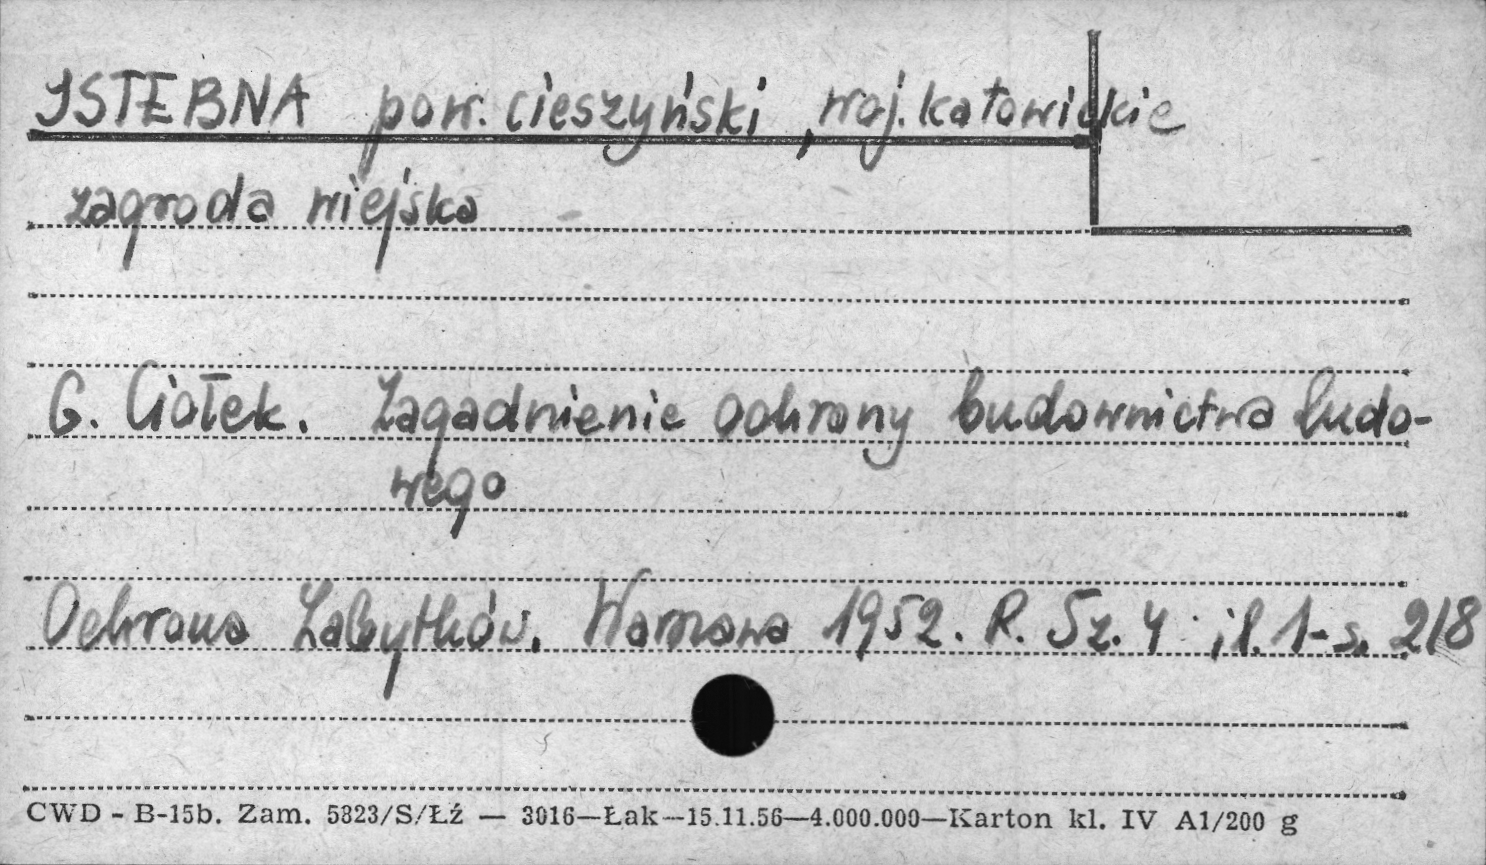 ISTEBNA pow. cieszyński, woj. katowickie
zagroda wiejska
G. Ciołek. Zagadnienie ochrony budownictwa ludo-
wego
Ochrona Zabytków. Warszawa 1952. R. 5 z. 4 il. 1 - s. 218
CWD - B-15b. Zam. 5823/S/Łź — 3016—Łak—15.11.56—4.000.000—Karton kl. IV A1/200 g